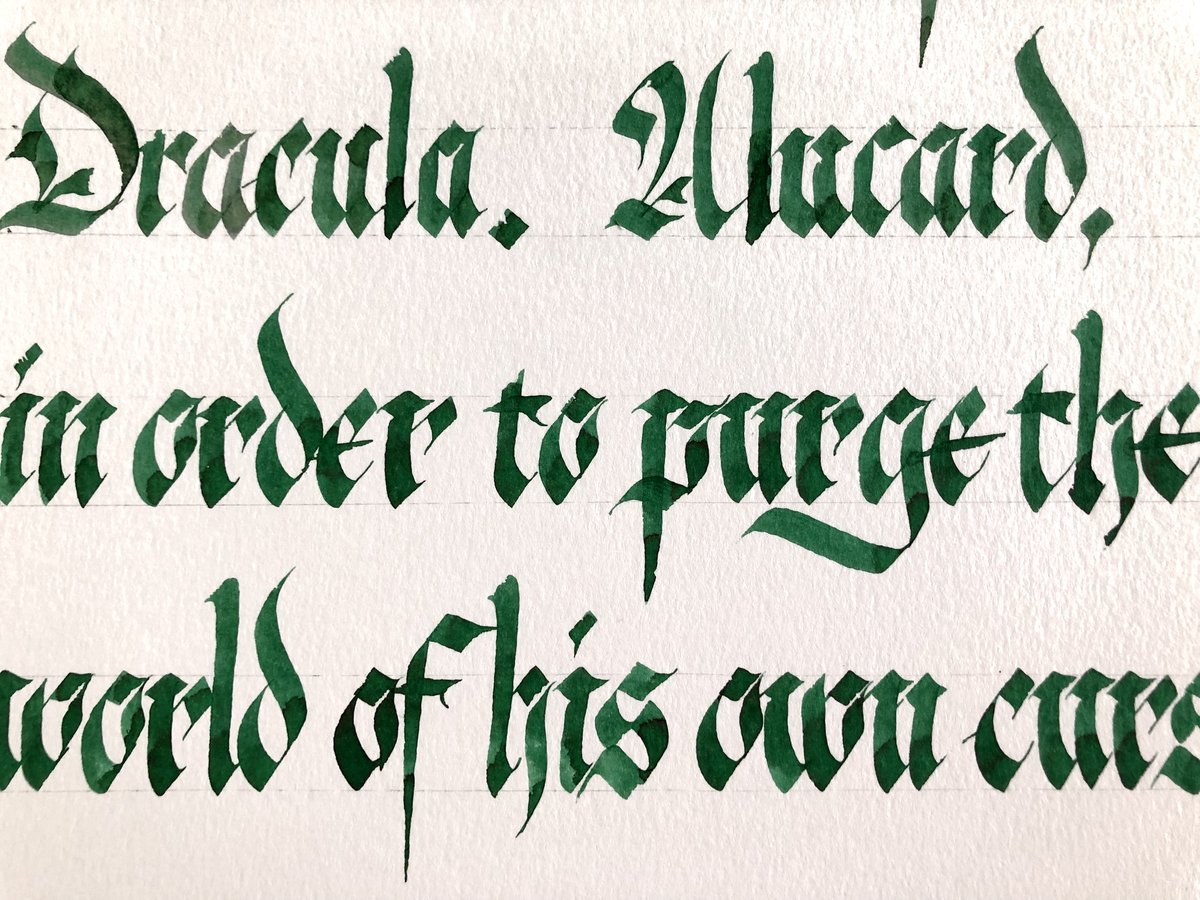 Dracula. Alucard,
in order to purge the
world of his own curs